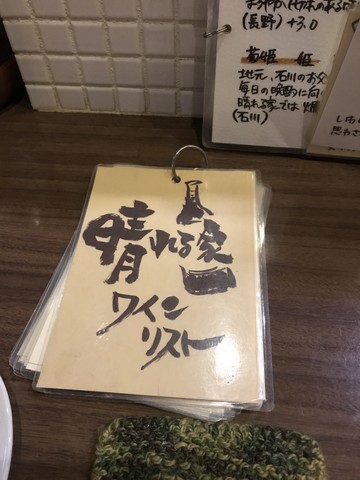 (長野) +3.0
菊姫 姫
地元、石川のお父
毎日の晩酌に向
晴れる家では 燗
(石川)
しいね
思わさ
晴れる家
ワイン
リスト